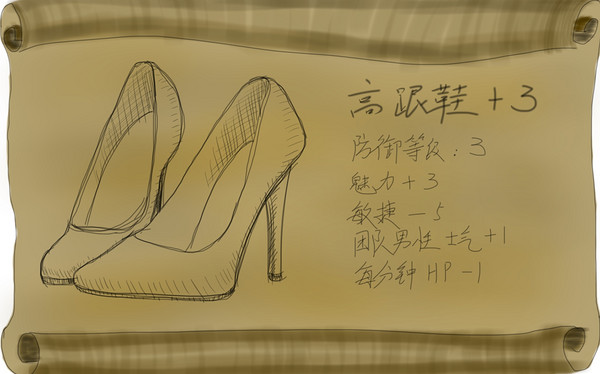 高跟鞋+3
防御等级:3
魅力+3
敏捷-5
团队男性士气+1
每分钟HP-1